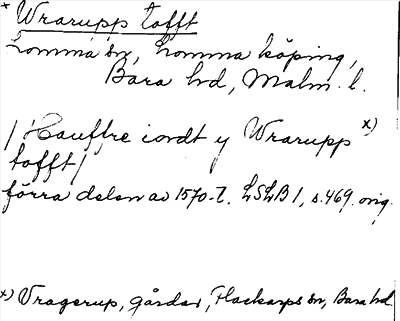 * Wrarupp tofft
Lomma sn, Lomma köping,
Bara hd, Malm. l.
/ Hauffre iordt y Wrarupp x)
tofft /
förra delen av 1570-t. LSLB 1, s. 469. orig.
x) Vragerup, gårdar, Flackarps sn, Bara hd.